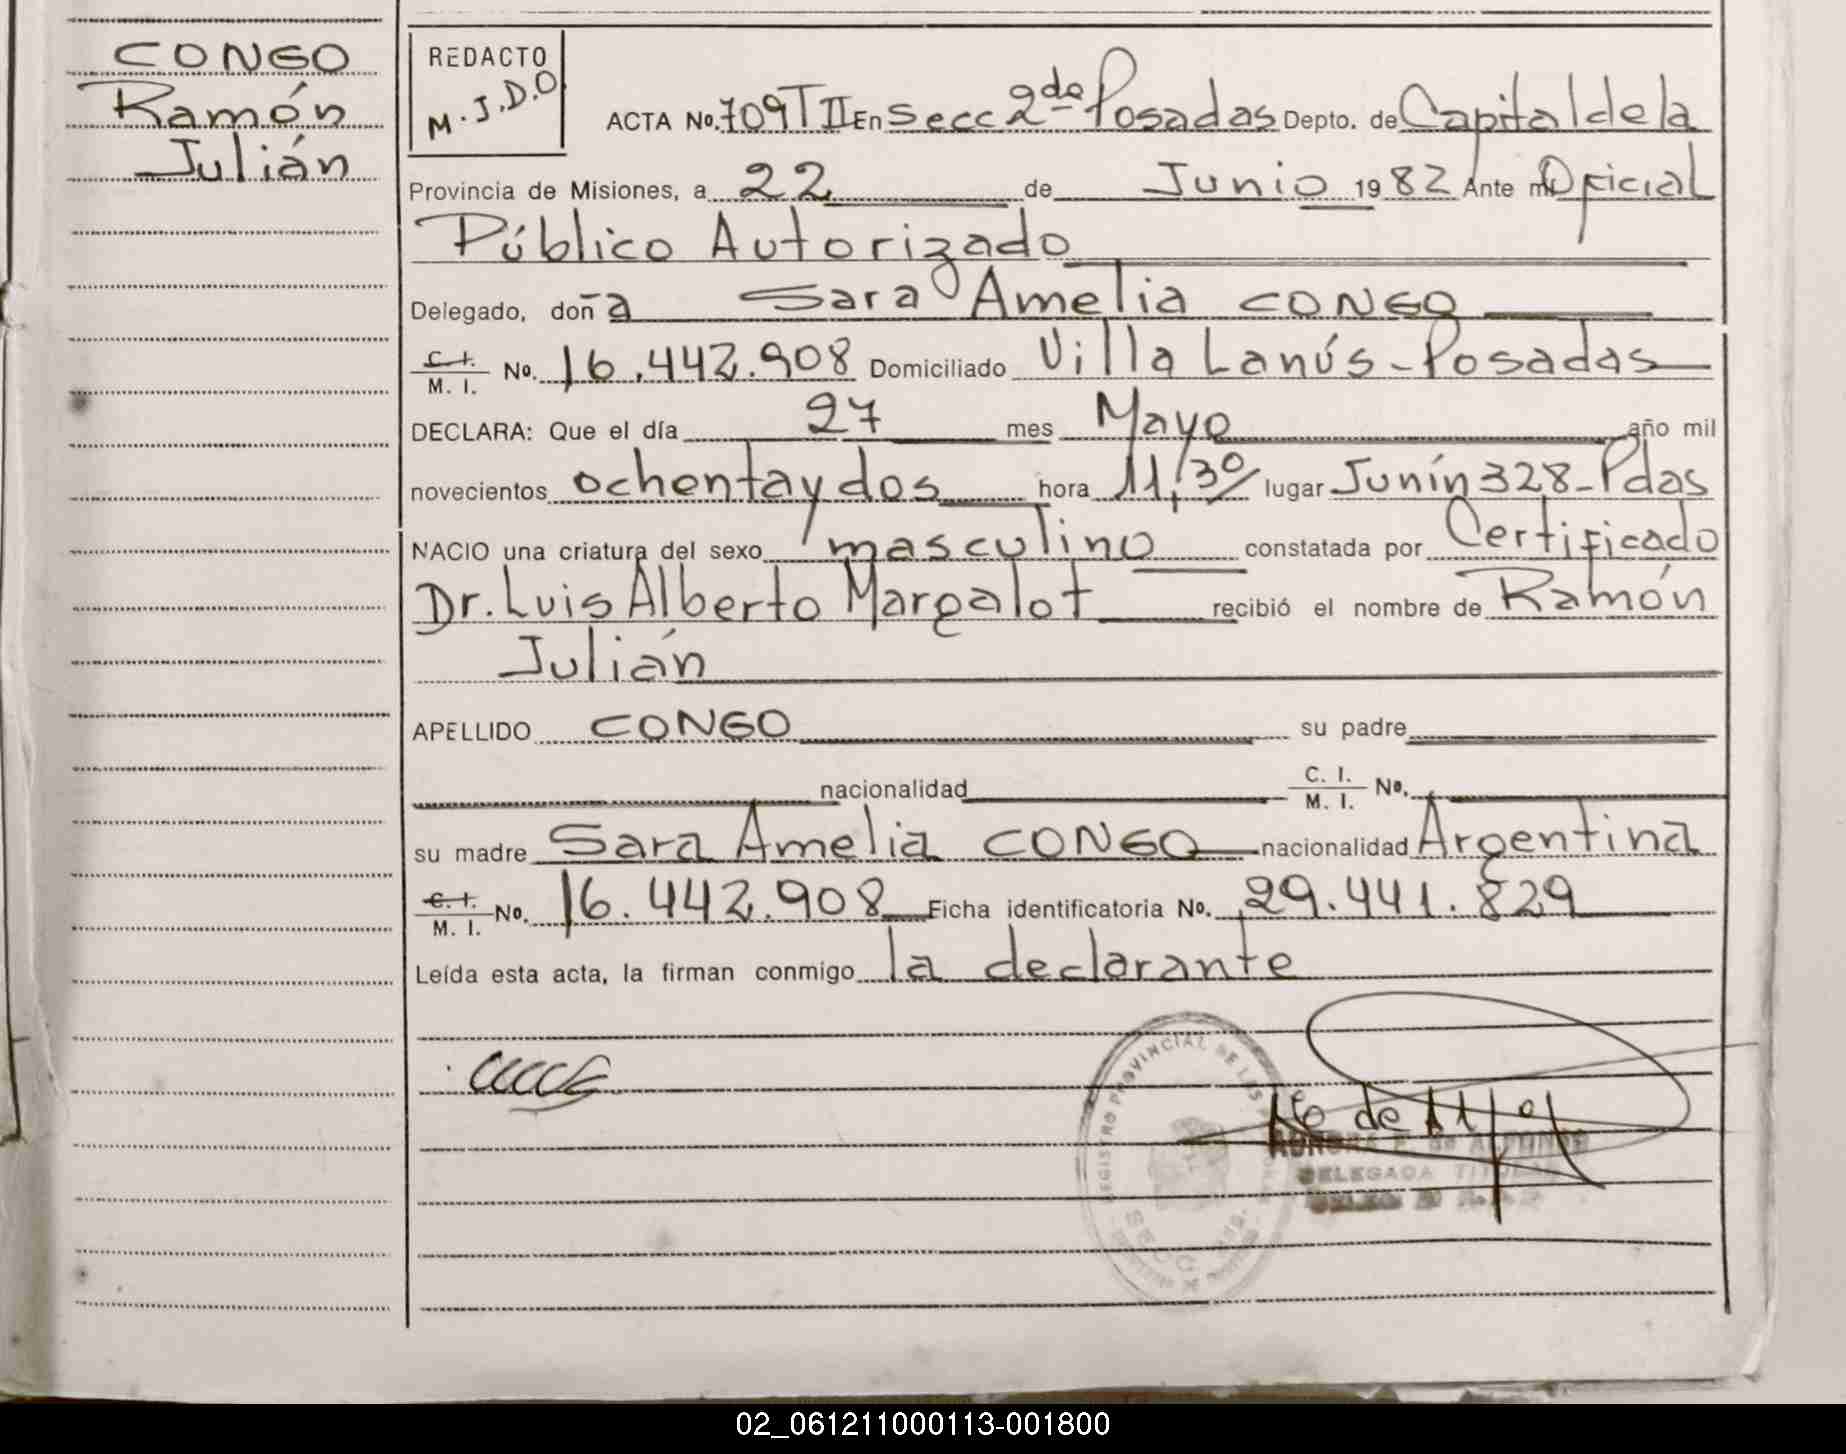 CONGO
Ramón
Julián
REDACTO
M.J.D.O
ACTA No. 709 T II En Secc 2da Posadas Depto. de Capital de la
Provincia de Misiones, a 22 de Junio 1982 Ante mi Oficial
Público Autorizado
Delegado, doña Sara Amelia CONGO
C. I. / M. I. No. 16.442.908 Domiciliado Villa Lanús - Posadas
DECLARA: Que el día 27 mes Mayo año mil
novecientos ochenta y dos hora 11,30 lugar Junín 328 - Pdas
NACIO una criatura del sexo masculino constatada por Certificado
Dr. Luis Alberto Margalot recibió el nombre de Ramón
Julián
APELLIDO CONGO su padre
nacionalidad C. I. / M. I. No.
su madre Sara Amelia CONGO nacionalidad Argentina
C. I. / M. I. No. 16.442.908 Ficha identificatoria No. 29.441.829
Leída esta acta, la firman conmigo la declarante
REGISTRO PROVINCIAL DE LAS
SECC
DELEGADA TITULAR
02_061211000113-001800